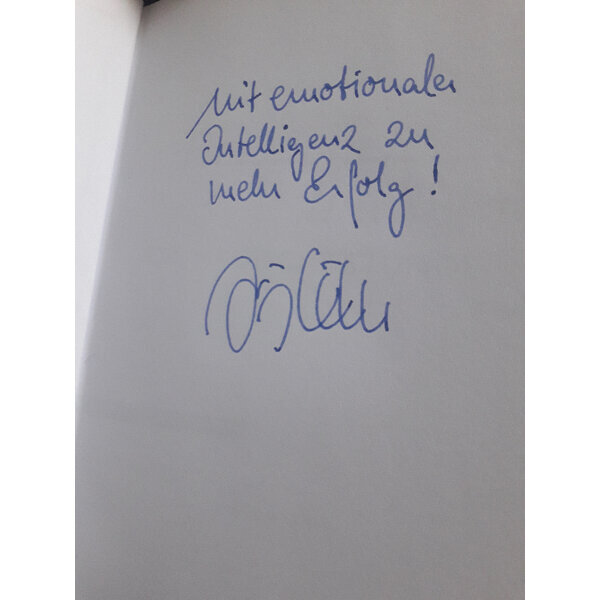 Mit emotionaler
Intelligenz zu
mehr Erfolg!